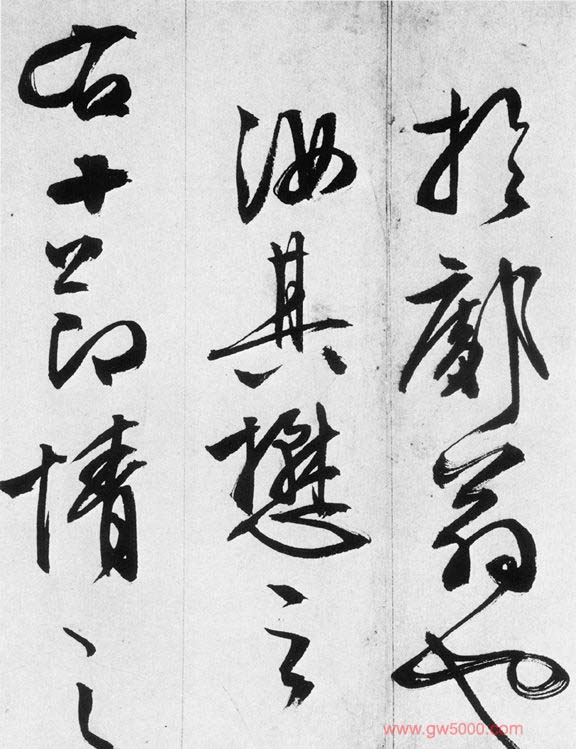 於鄺翁也
汝其懋之
右十節情之
www.gw5000.com